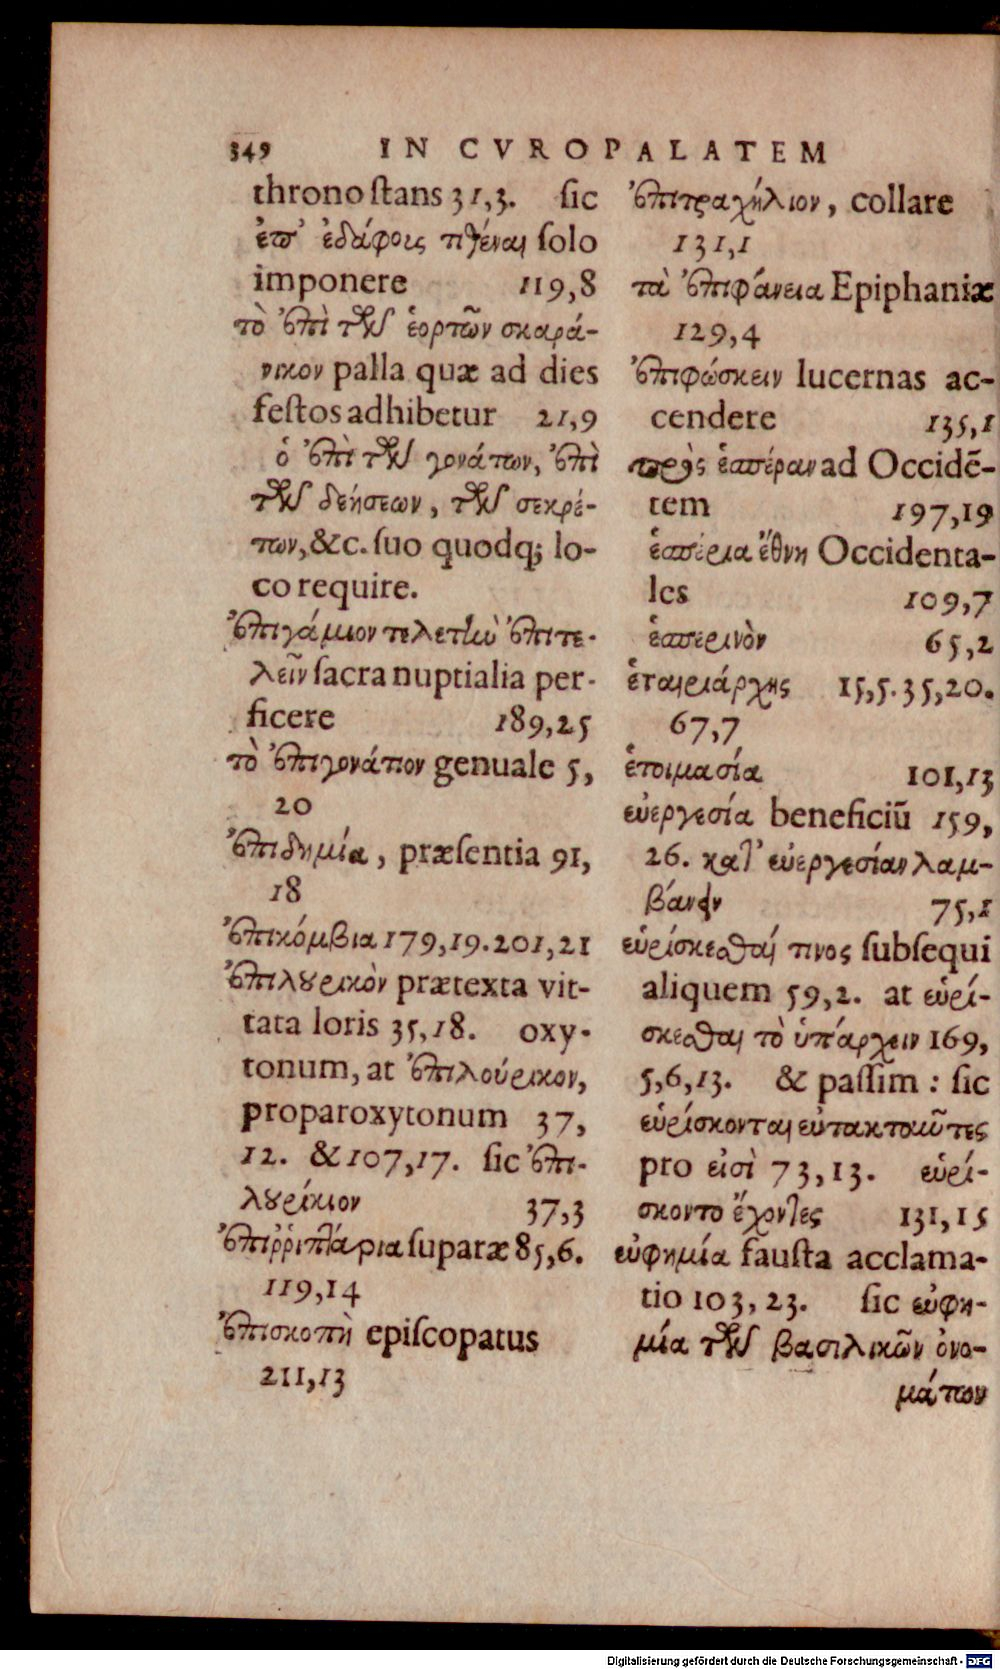 349 IN CVROPALATEM
throno ſtans 31,3. ſic
ἐπ' ἐδάφοις τιθέναι ſolo
imponere 119,8
τὸ ἐπὶ τῶν ἑορτῶν σκαρά-
νικον palla quæ ad dies
feſtos adhibetur 21,9
ὁ ἐπὶ τῶν γονάτων, ἐπὶ
τῶν δεήσεων, τῶν σεκρέ-
των, &c. ſuo quodq; lo-
co require.
ἐπιγάμιον τελετὴν ἐπιτε-
λεῖν ſacra nuptialia per-
ficere 189,25
τὸ ἐπιγονάτιον genuale 5,
20
ἐπιδημία, præſentia 91,
18
ἐπικόμβια 179,19. 201,21
ἐπιλουρικὸν prætexta vit-
tata loris 35,18. oxy-
tonum, at ἐπιλούρικον,
proparoxytonum 37,
12. & 107,17. ſic ἐπι-
λουρίκιον 37,3
ἐπιῤῥιπτάρια ſuparæ 85,6.
119,14
ἐπισκοπὴ epiſcopatus
211,13
ἐπιτραχήλιον, collare
131,1
τὰ ἐπιφάνεια Epiphaniæ
129,4
ἐπιφώσκειν lucernas ac-
cendere 135,1
πρὸς ἑσπέραν ad Occidē-
tem 197,19
ἑσπέρια ἔθνη Occidenta-
les 109,7
ἑσπερινὸν 65,2
ἑταιριάρχης 15,5. 35,20.
67,7
ἑτοιμασία 101,13
εὐεργεσία beneficiū 159,
26. κατ' εὐεργεσίαν λαμ-
βάνειν 75,1
εὑρίσκεσθαί τινος ſubſequi
aliquem 59,2. at εὑρί-
σκεσθαι τὸ ὑπάρχειν 169,
5,6,13. & paſſim : ſic
εὑρίσκονται εὐτακτοῦντες
pro εἰσὶ 73,13. εὑρί-
σκοντο ἔχοντες 131,15
εὐφημία fauſta acclama-
tio 103,23. ſic εὐφη-
μία τῶν βασιλικῶν ὀνο-
μάτων
Digitalisierung gefördert durch die Deutsche Forschungsgemeinschaft - DFG